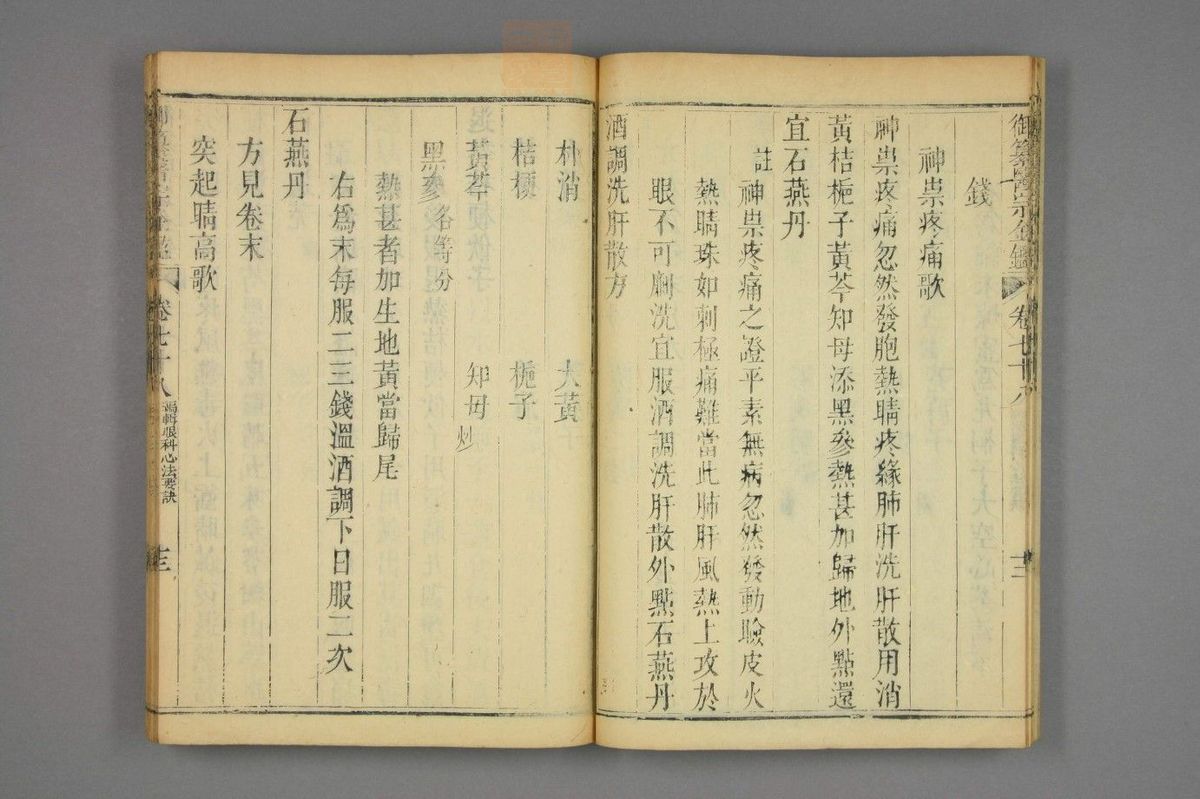 御纂醫宗金鑑 卷七十八
錢
神祟疼痛歌
神祟疼痛忽然發胞熱睛疼緣肺肝洗肝散用消
黃桔梔子黃芩知母添黑參熱甚加歸地外點還
宜石燕丹
註神祟疼痛之證平素無病忽然發動瞼皮火
熱睛珠如刺極痛難當此肺肝風熱上攻於
眼不可劆洗宜服酒調洗肝散外點石燕丹
酒調洗肝散方
朴消 大黃
桔梗 梔子
黃芩 知母炒
黑參各等分
熱甚者加生地黃當歸尾
右爲末每服二三錢溫酒調下日服二次
石燕丹
方見卷末
突起睛高歌
卷七十八 編輯眼科心法要訣